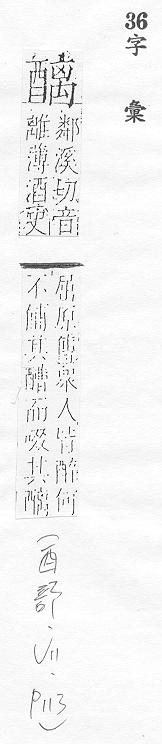 36字 彙
醨
鄰溪切音
離薄酒叓
屈原傳衆人皆醉何
不餔其醩而啜其醨
(酉部．VII．P113)